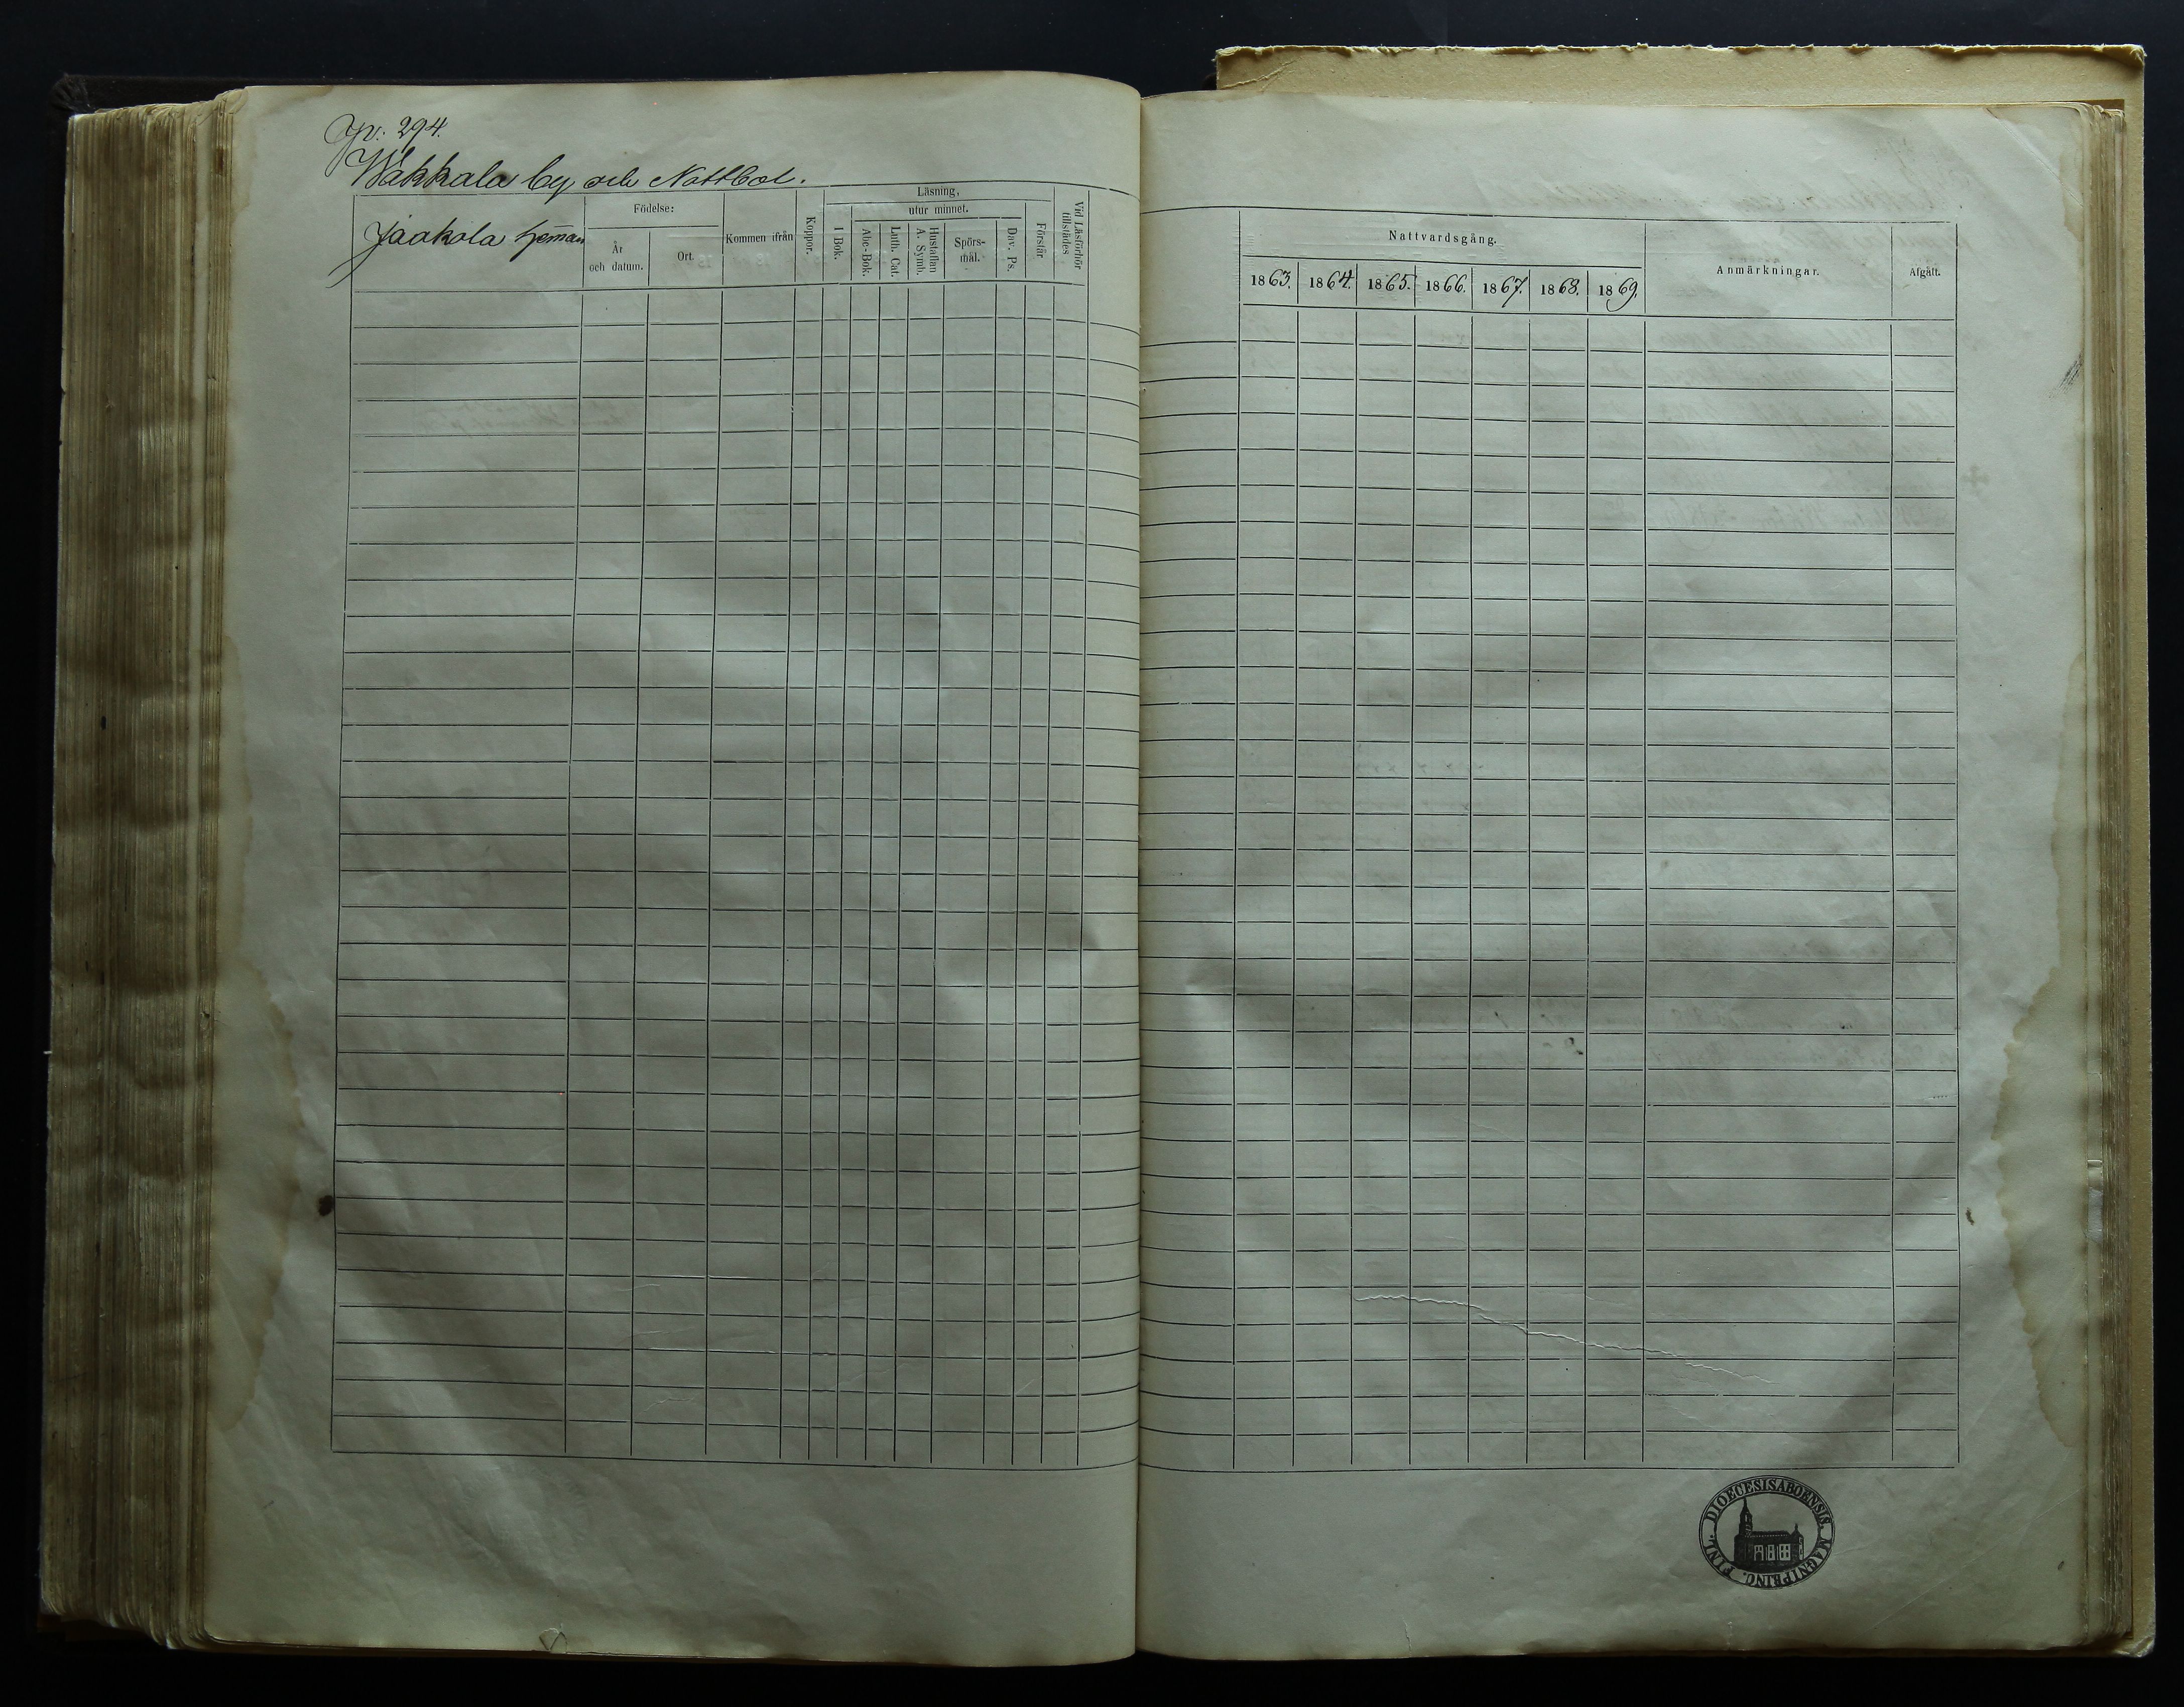 Pp: 294.
Wakkala by och Nattbol.
Jaakola heman
Födelse:
Åt och datum.
Ort.
Kommen ifrån
Koppor.
Läsning,
utur minnet.
I Bok.
Abc-Bok.
Luth. Cat.
Hustaflan A. Symb.
Spörs-
mål.
Dav. Ps.
Förstår
Vid Läsförhör tillstädes
Nattvardsgång.
1863. 1864. 1865. 1866. 1867. 1868. 1869.
Anmärkningar.
Afgått.
DIOECESIS ABOENSIS. MAGNI PRINC. FINL.